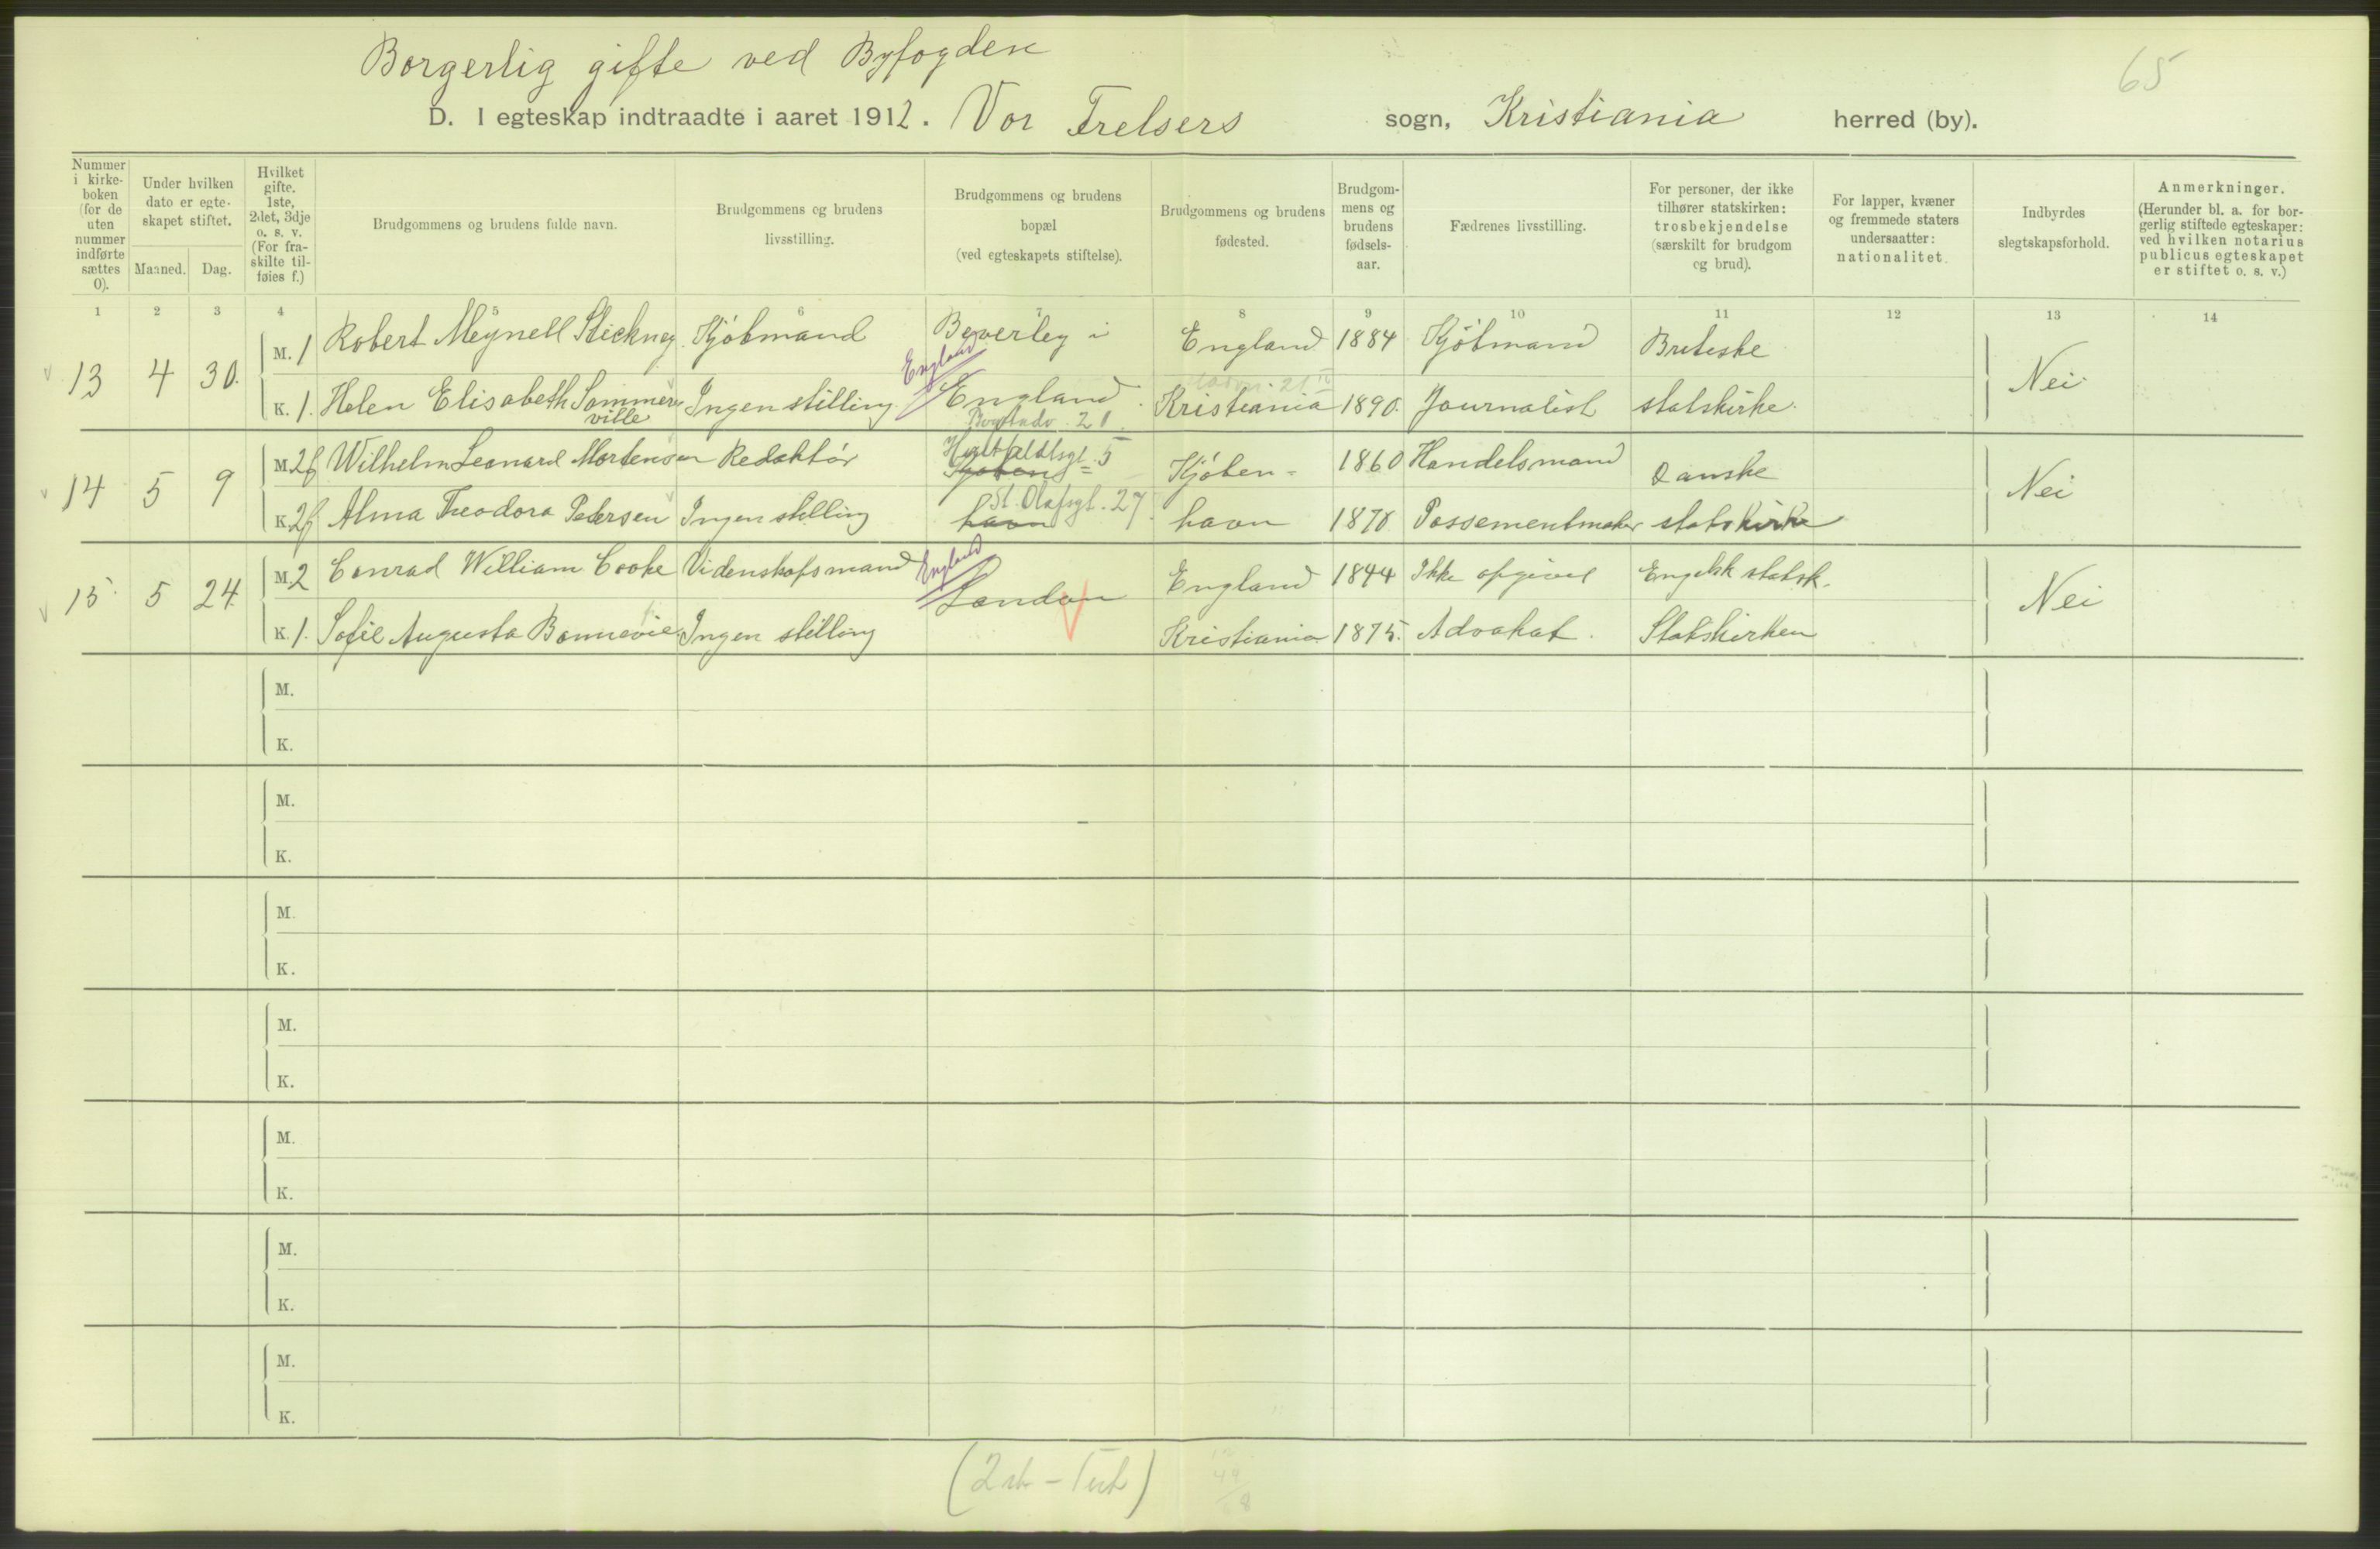 Borgerlig gifte ved Byfogden
65
D. I egteskap indtraadte i aaret 1912. Vor Frelsers sogn, Kristiania herred (by).
Nummer i kirke-boken (for de uten nummer indførte sættes 0).
Under hvilken dato er egte-skapet stiftet.
Maaned. Dag.
Hvilket gifte. 1ste, 2det, 3dje o. s. v. (For fra-skilte til-føies f.)
Brudgommens og brudens fulde navn.
Brudgommens og brudens livsstilling.
Brudgommens og brudens bopæl (ved egteskapets stiftelse).
Brudgommens og brudens fødested.
Brudgom-mens og brudens fødsels-aar.
Fædrenes livsstilling.
For personer, der ikke tilhører statskirken: trosbekjendelse (særskilt for brudgom og brud).
For lapper, kvæner og fremmede staters undersaatter: nationalitet.
Indbyrdes slegtskapsforhold.
Anmerkninger. (Herunder bl. a. for bor-gerlig stiftede egteskaper: ved hvilken notarius publicus egteskapet er stiftet o. s. v.)
1 2 3 4 5 6 7 8 9 10 11 12 13 14
M. 1 Robert Meynell Stickney Kjøbmand Beverley i England 1884 Kjøbmand Britiske
13 4 30. England Nei
K. 1. Helen Elisabeth Sommerville Ingen stilling England. Kristiania 1890. Journalist statskirke.
20
M. 2f Wilhelm Leonard Mortensen Redaktør Huitfeldtsgt. 5 Kjøben- 1860 Handelsmand Danske
14 5 9 Kjøben= Nei
K. 2f Alma Theodora Petersen Ingen stilling St. Olafsgt. 27 havn havn 1870 Possementmaker statskirke
M. 2 Conrad William Cooke Videnskapsmand England England 1844 Ikke opgivet Engelsk statsk.
15 5 24. London Nei
K. 1. Sofie Augusta Bonnevie Ingen stilling Kristiania 1875. Advokat. Statskirken
M.
K.
M.
K.
M.
K.
M.
K.
M.
K.
M.
K.
M.
K.